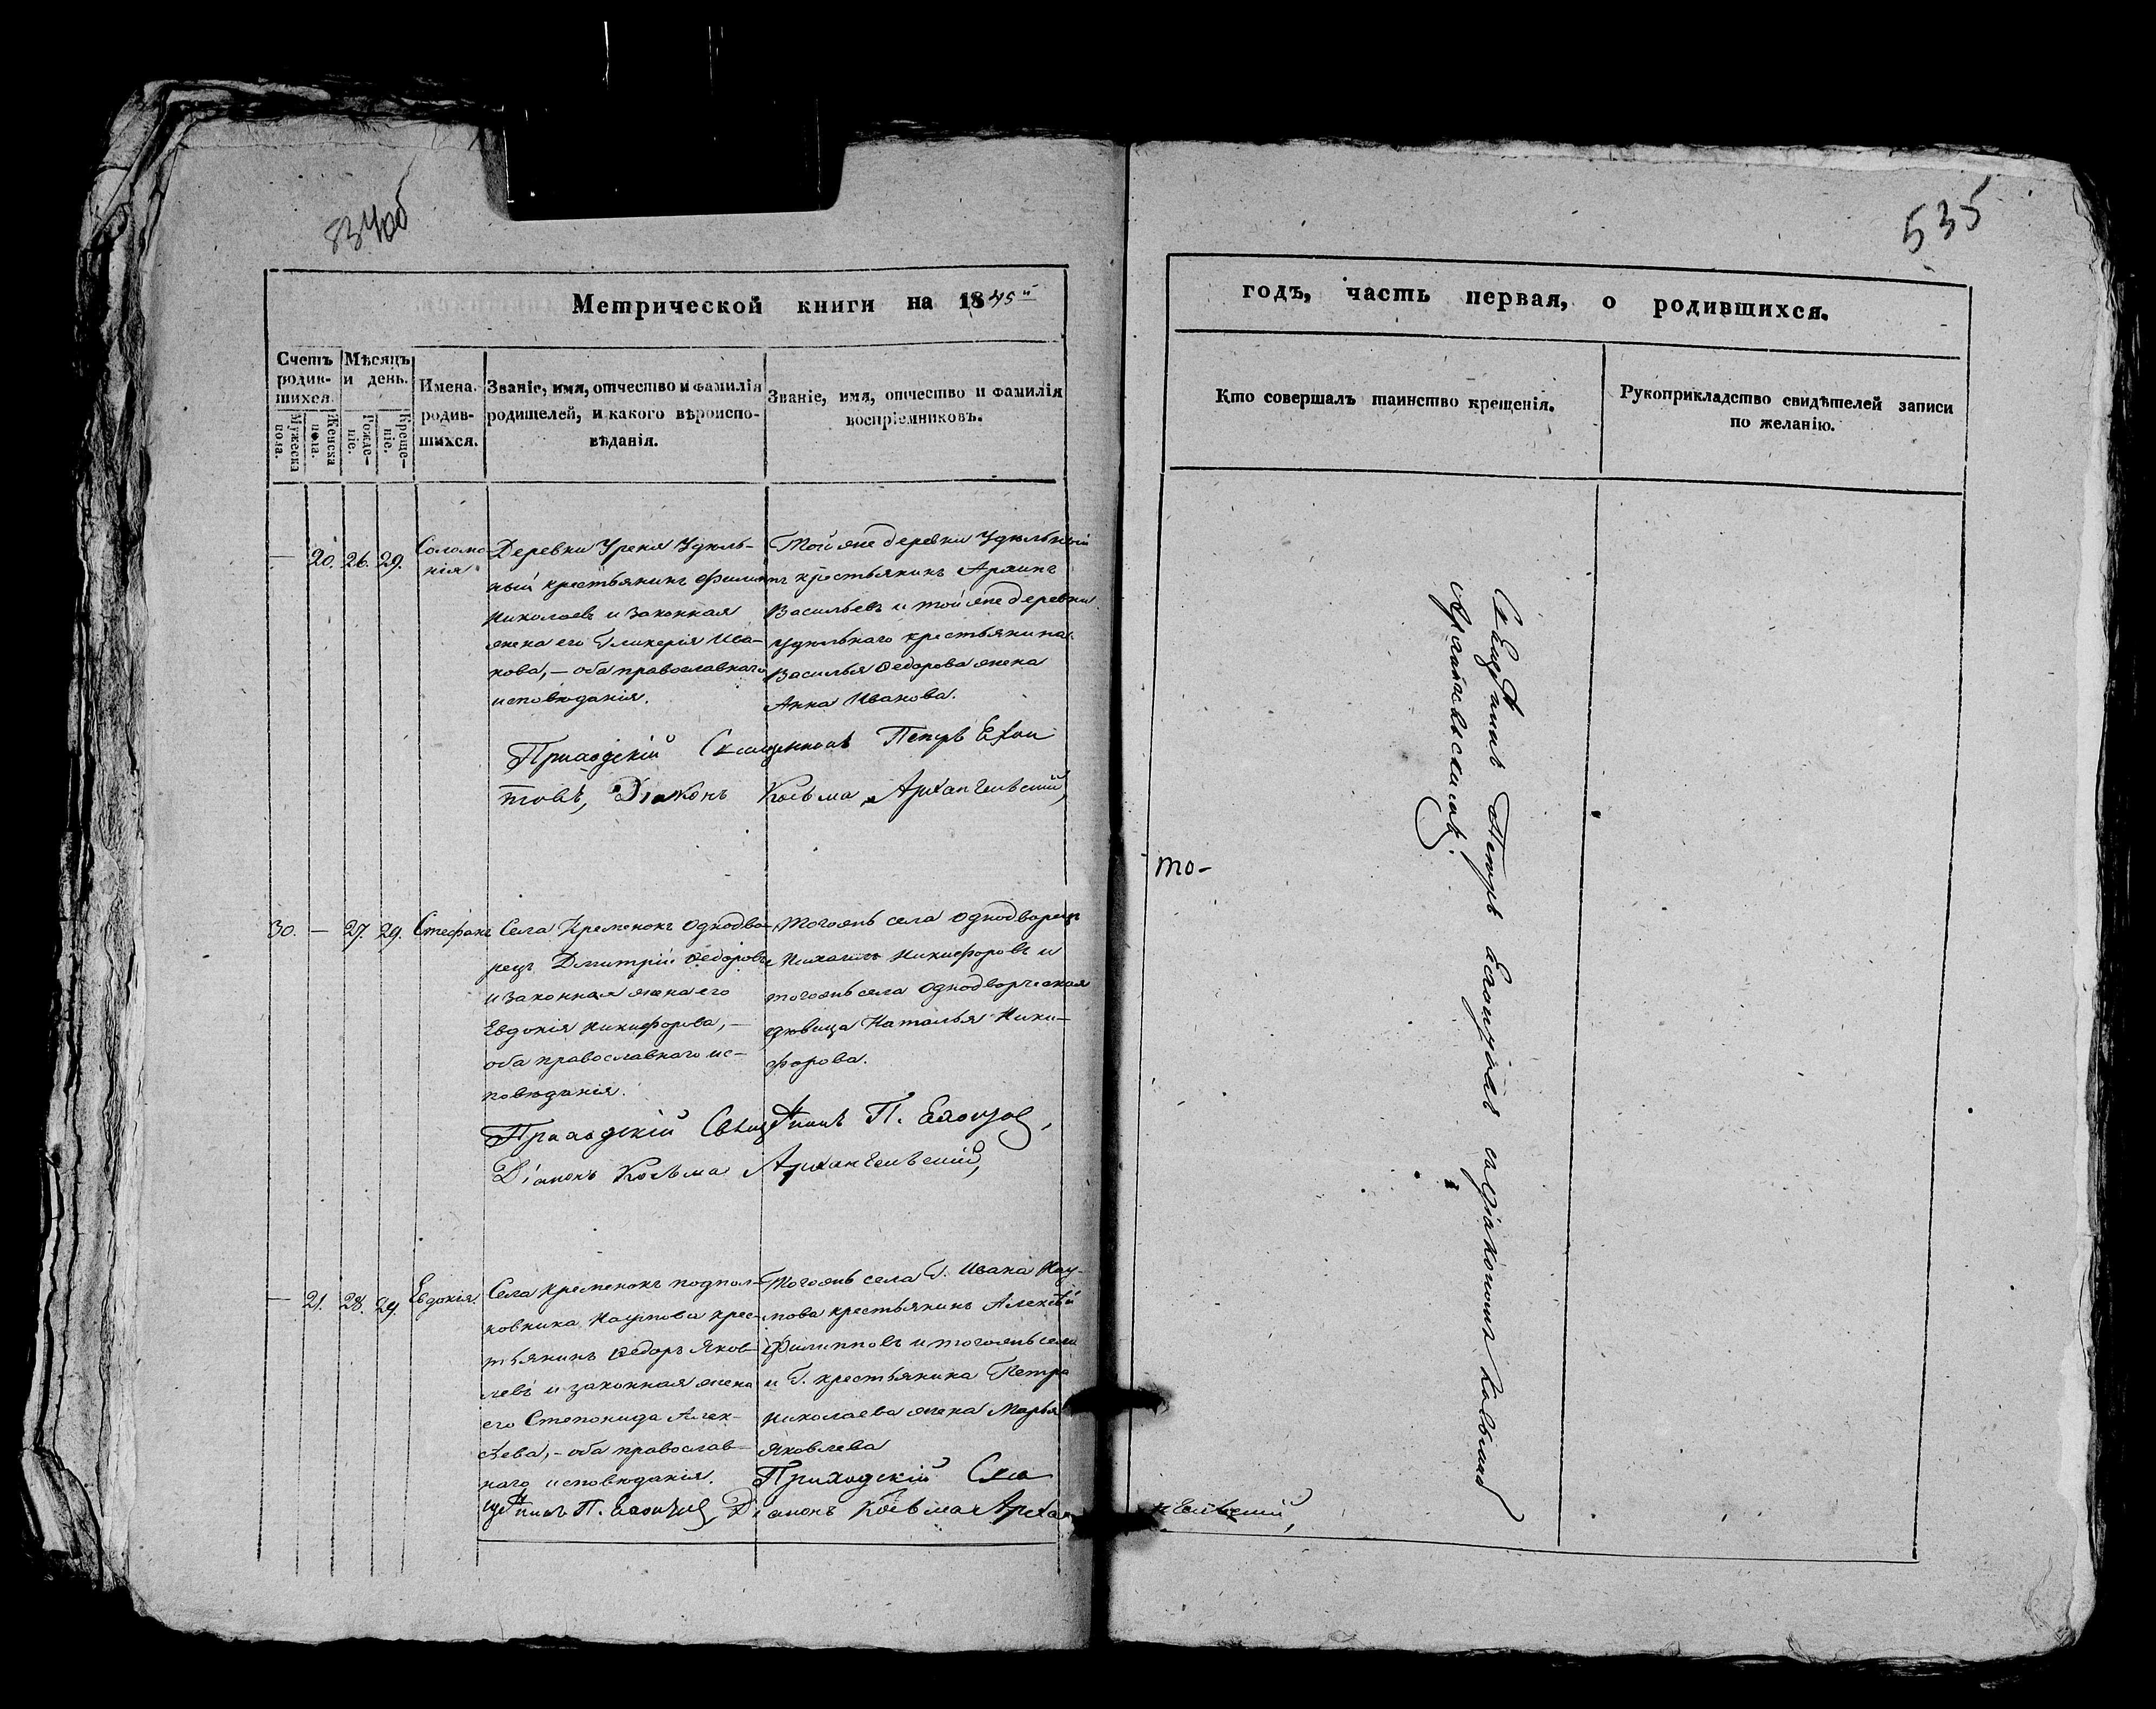 534об
535
Метрической книги на 1845й
годъ, часть первая, о родившихся.
Счетъ родив-шихся.
Мужеска пола.
Женска пола.
Мѣсяцъ и день.
Рожде-ніе.
Креще-ніе.
Имена родив-шихся.
Званіе, имя, отчество и фамилія
родителей, и какого вѣроиспо-
вѣданія.
Званіе, имя, отчество и фамилія
воспріемниковъ.
Кто совершалъ таинство крещенія.
Рукоприкладство свидѣтелей записи
по желанію.
— 20. 26. 29.
Соломо-
нія
Деревни Уреня Удѣль-
ный крестьянинъ Филипъ
Николаевъ и законная
жена его Гликерія Ива-
нова, — оба православнаго
исповѣданія.
Той же деревни Удѣльный
крестьянинъ Архипъ
Васильевъ и той же деревни
Удѣльнаго крестьянина
Василья Ѳедорова жена
Анна Иванова.
Приходскій Священникъ Петръ
товъ, Діаконъ Косьма Архангельскій,
30. — 27. 29.
Стефанъ
Села Кременокъ однодво-
рецъ Дмитрій Ѳедоровъ
и законная жена его
Евдокія Никифорова, —
оба православнаго ис-
повѣданія.
Тогожъ села однодворецъ
Михаилъ Никифоровъ и
тогожъ села однодворческая
дѣвица Наталья Ники-
форова.
то-
Приходскій П.
Діаконъ Косьма Архангельскій,
— 21. 28. 29.
Евдокія.
Села Кременокъ подпол-
ковника Наумова крес-
тьянинъ Ѳедоръ Яков-
левъ и законная жена
его Степонида Алек-
сѣева, — оба православ-
наго исповѣданія.
Тогожъ села Г. Ивана Нау-
мова крестьянинъ Алексѣй
Филипповъ и тогожъ села
и Г. крестьянина Петра
Николаева жена Марья
Яковлева
Приходскій Свя
П. Діаконъ Косьма Арха
нгельскій,
Петръ съ діакономъ Косьмою
Архангельскимъ.